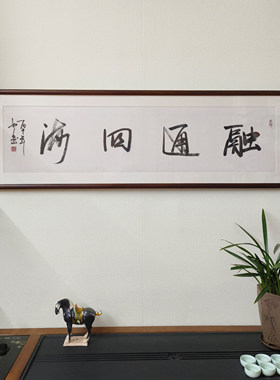 融通四海